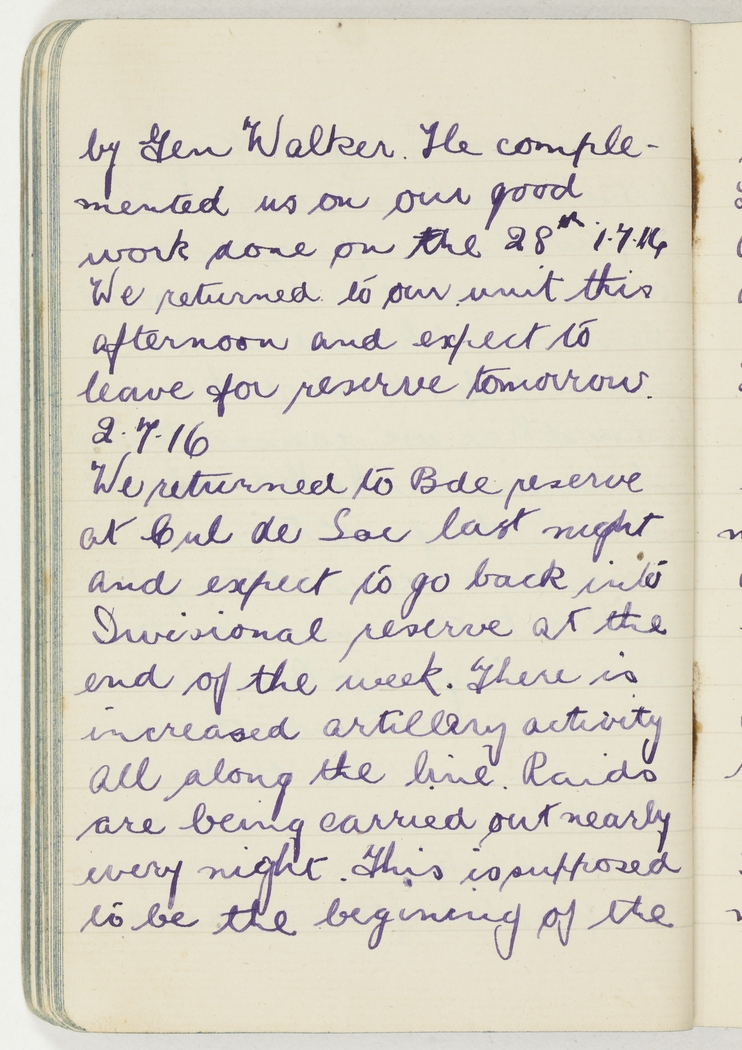 by Gen Walker. He comple-
mented us on our good
work done on the 28th 1.7.16
We returned to our unit this
afternoon and expect to
leave for reserve tomorrow.
2.7.16
We returned to Bde reserve
at Cul de Sac last night
and expect to go back into
Divisional reserve at the
end of the week. There is
increased artillery activity
all along the line. Raids
are being carried out nearly
every night. This is supposed
to be the begining of the